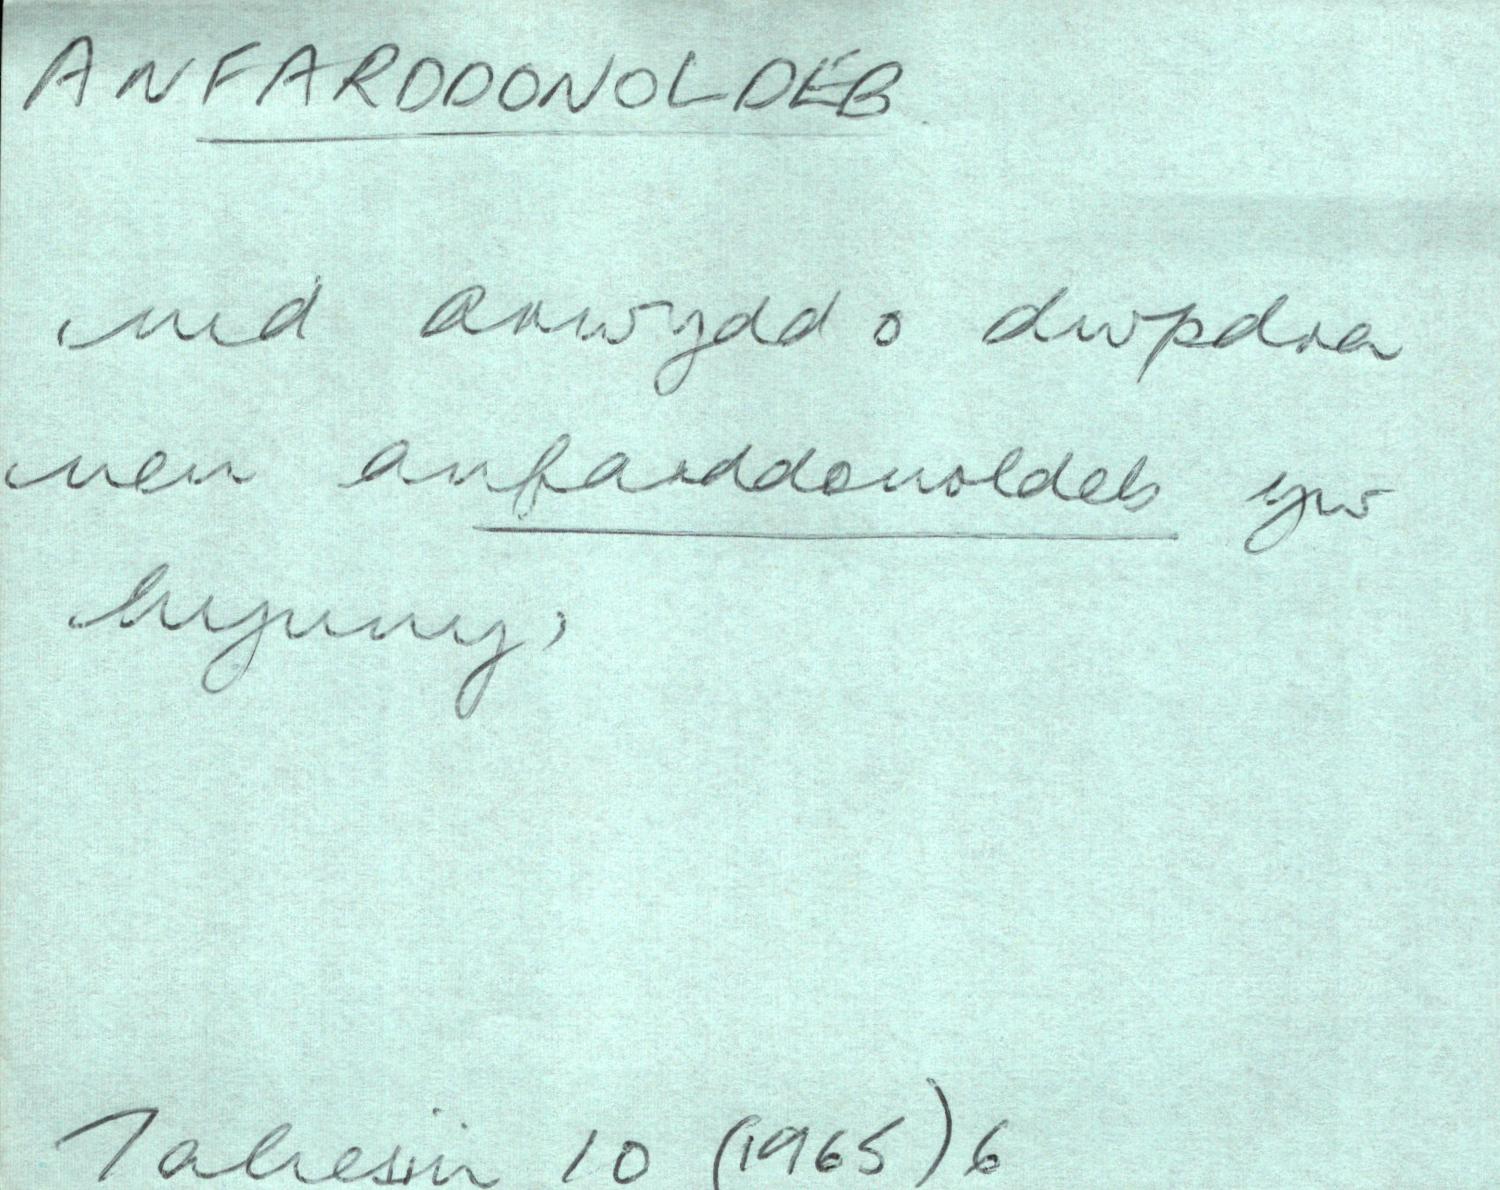 ANFARDDONOLDEB
nid arwydd o dwpdra
neu anfarddonoldeb yw
hynny,
Taliesin 10 (1965) 6